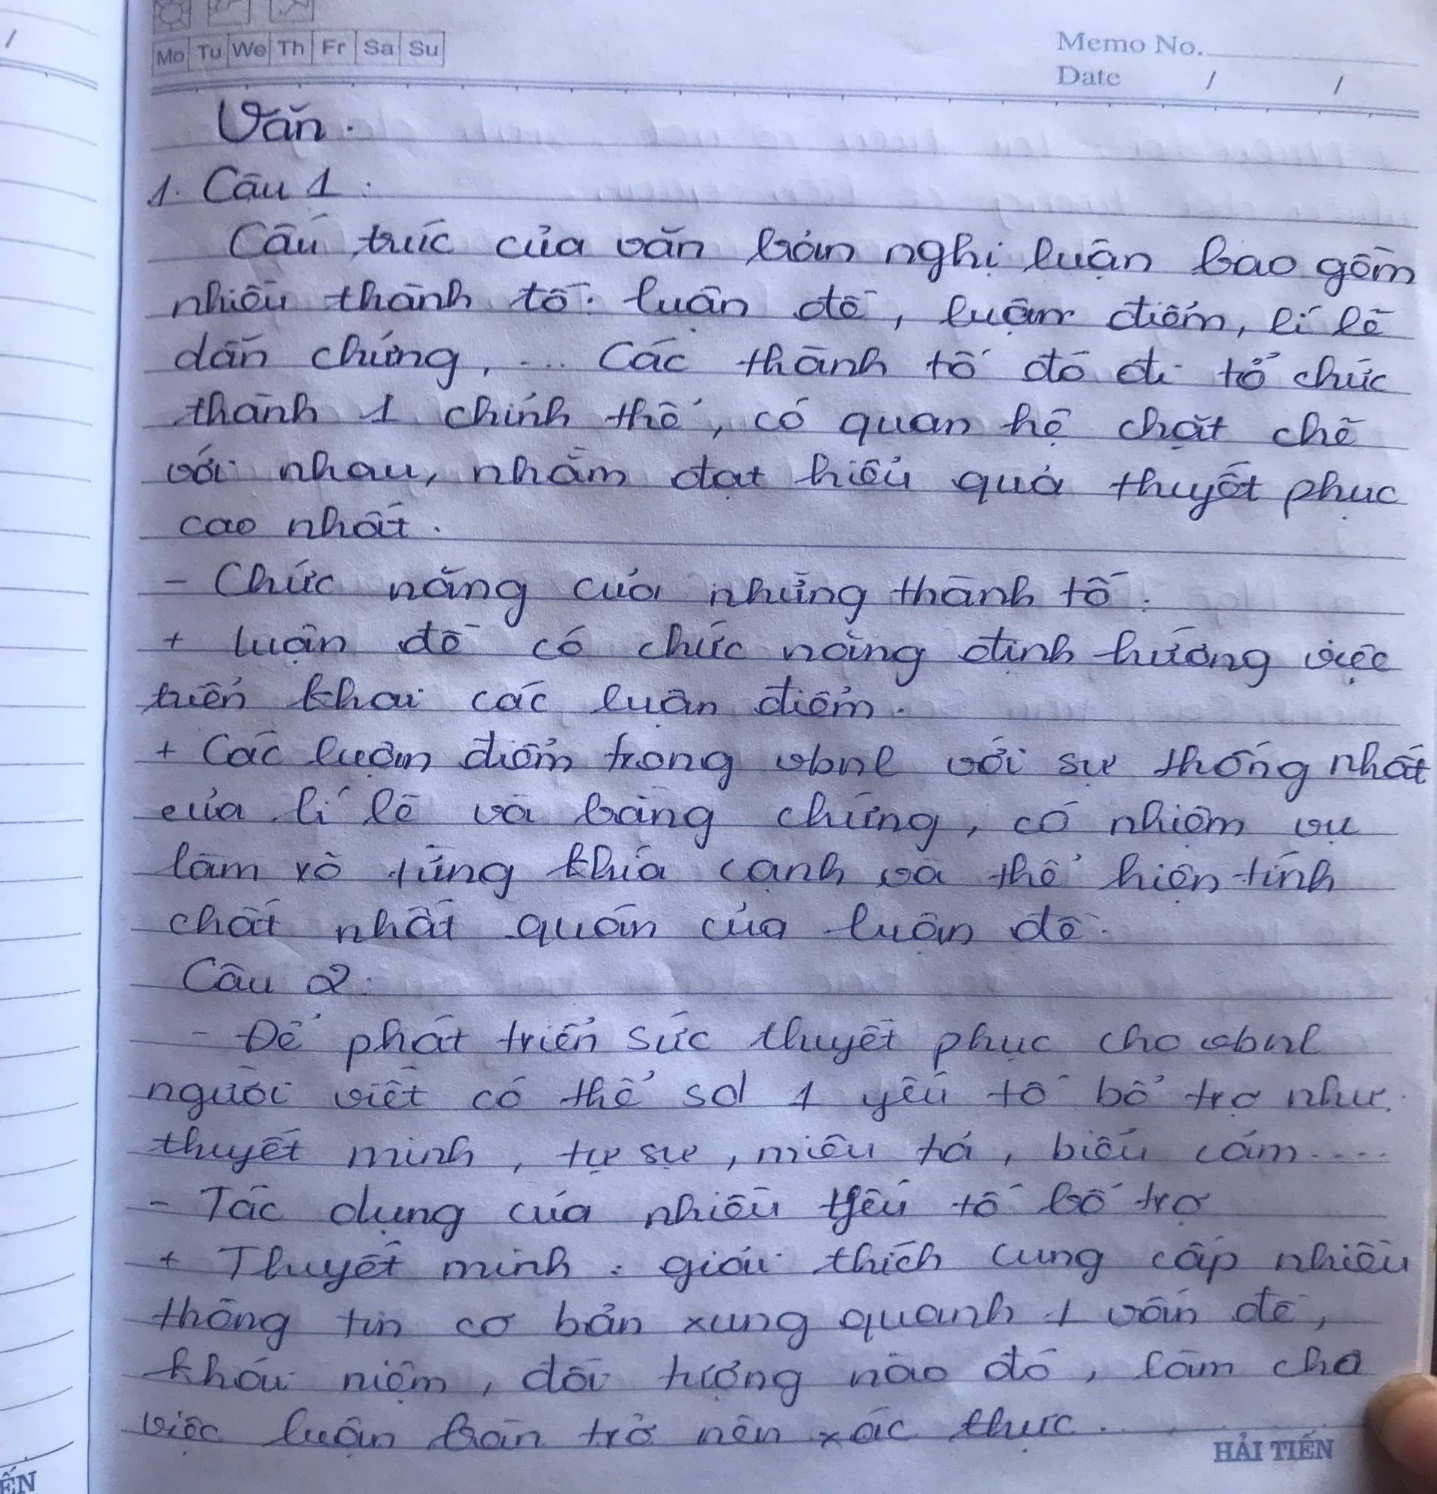 Mo Tu We Th Fr Sa Su
Memo No.
Date / /
Văn.
1. Câu 1:
Cấu trúc của văn bản nghị luận bao gồm
nhiều thành tố: luận đề, luận điểm, lí lẽ
dẫn chứng, ... Các thành tố đó đc tổ chức
thành 1 chỉnh thể, có quan hệ chặt chẽ
với nhau, nhằm đạt hiểu quả thuyết phục
cao nhất.
- Chức năng của những thành tố:
+ luận đề có chức năng định hướng việc
triển khai các luận điểm.
+ Các luận điểm trong vbnl với sự thống nhất
của lí lẽ và bằng chứng, có nhiệm vụ
làm rõ từng khía cạnh và thể hiện tính
chất nhất quán của luận đề.
Câu 2:
- Để phát triển sức thuyết phục cho vbnl
người viết có thể sd 1 yếu tố bổ trợ như:
thuyết minh, tự sự, miêu tả, biểu cảm....
- Tác dụng của nhiều yếu tố bổ trợ
+ Thuyết minh: giải thích cung cấp nhiều
thông tin cơ bản xung quanh 1 vấn đề,
khái niệm, đối tượng nào đó, làm cho
việc luận bàn trở nên xác thực.
HẢI TIẾN
ẾN